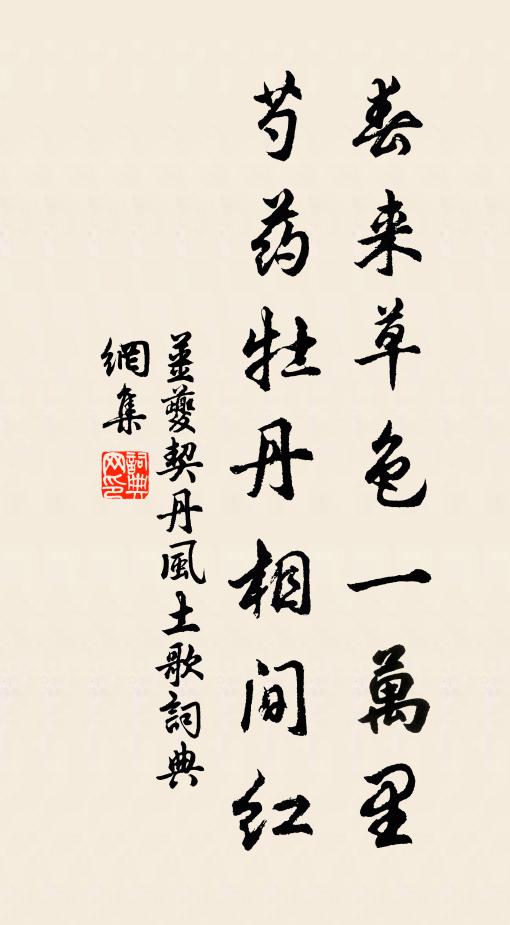 春来草色一萬里
芍药牡丹相间红
姜夔契丹風土歌詞典
網集
詞典網印